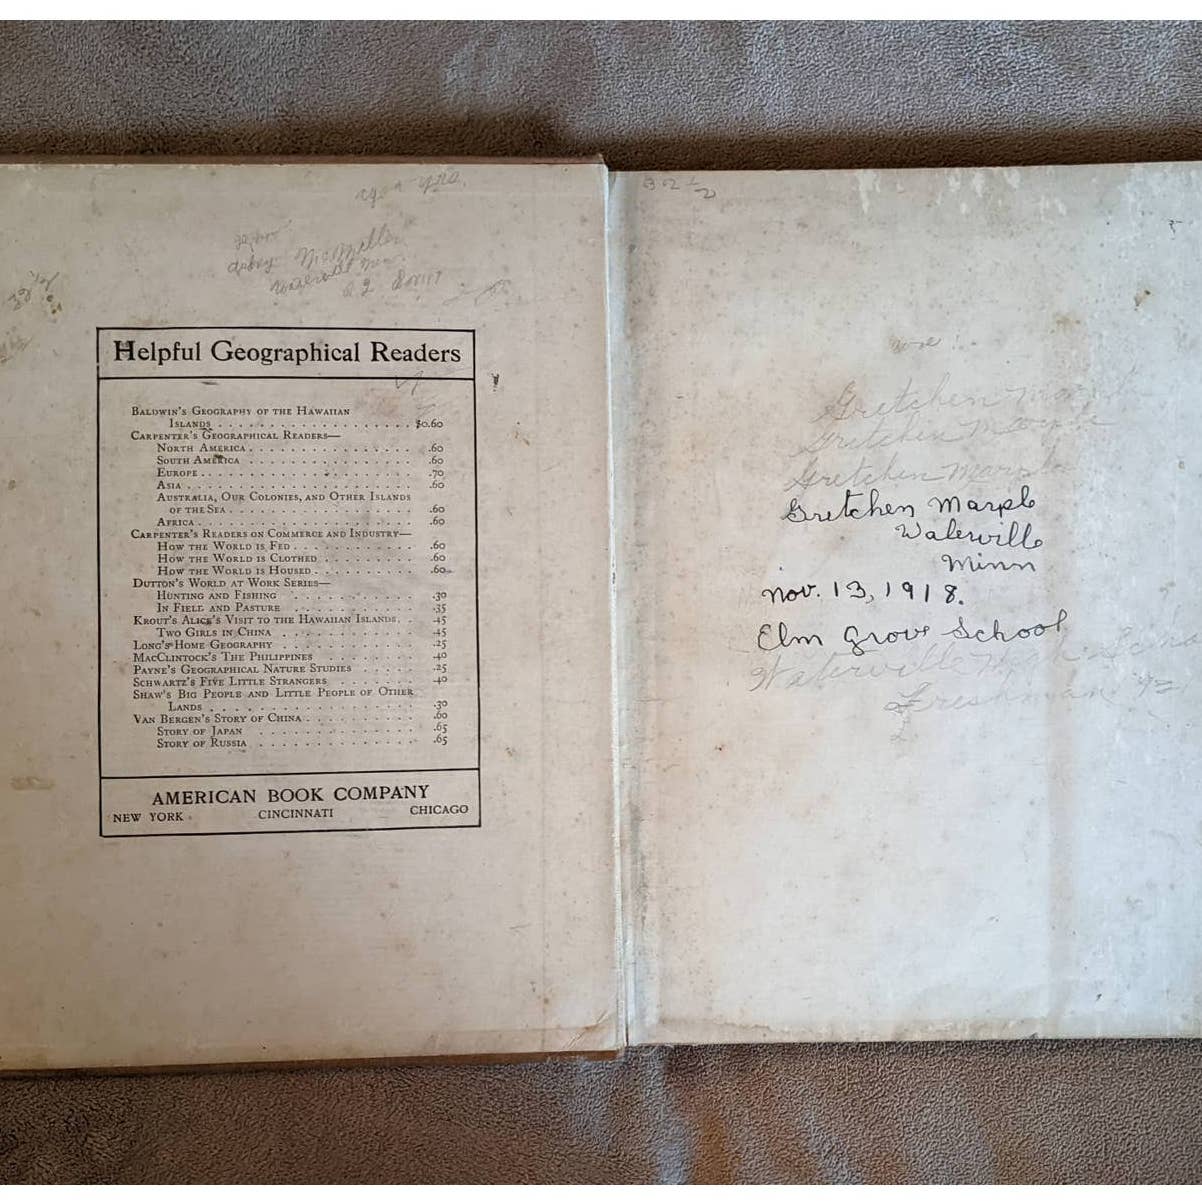 McMillen
Helpful Geographical Readers
Baldwin's Geography of the Hawaiian
Islands . . . . . . . . . . . . . . . . . . $0.60
Carpenter's Geographical Readers—
North America . . . . . . . . . . . . . . .60
South America . . . . . . . . . . . . . . .60
Europe . . . . . . . . . . . . . . . . . . .70
Asia . . . . . . . . . . . . . . . . . . . .60
Australia, Our Colonies, and Other Islands
of the Sea . . . . . . . . . . . . . . . .60
Africa . . . . . . . . . . . . . . . . . . .60
Carpenter's Readers on Commerce and Industry—
How the World is Fed . . . . . . . . . . .60
How the World is Clothed . . . . . . . . .60
How the World is Housed . . . . . . . . . .60
Dutton's World at Work Series—
Hunting and Fishing . . . . . . . . . . .30
In Field and Pasture . . . . . . . . . . .35
Krout's Alice's Visit to the Hawaiian Islands . . .45
Two Girls in China . . . . . . . . . . . .45
Long's Home Geography . . . . . . . . . . .25
MacClintock's The Philippines . . . . . . .40
Payne's Geographical Nature Studies . . . . .25
Schwartz's Five Little Strangers . . . . . .40
Shaw's Big People and Little People of Other
Lands . . . . . . . . . . . . . . . . . .30
Van Bergen's Story of China . . . . . . . . .60
Story of Japan . . . . . . . . . . . . . .65
Story of Russia . . . . . . . . . . . . . .65
AMERICAN BOOK COMPANY
NEW YORK CINCINNATI CHICAGO
Gretchen Marple
Gretchen Marple
Gretchen Marple
Gretchen Marple
Waterville
Minn
Nov. 13, 1918.
Elm Grove School
Waterville
Freshman '21